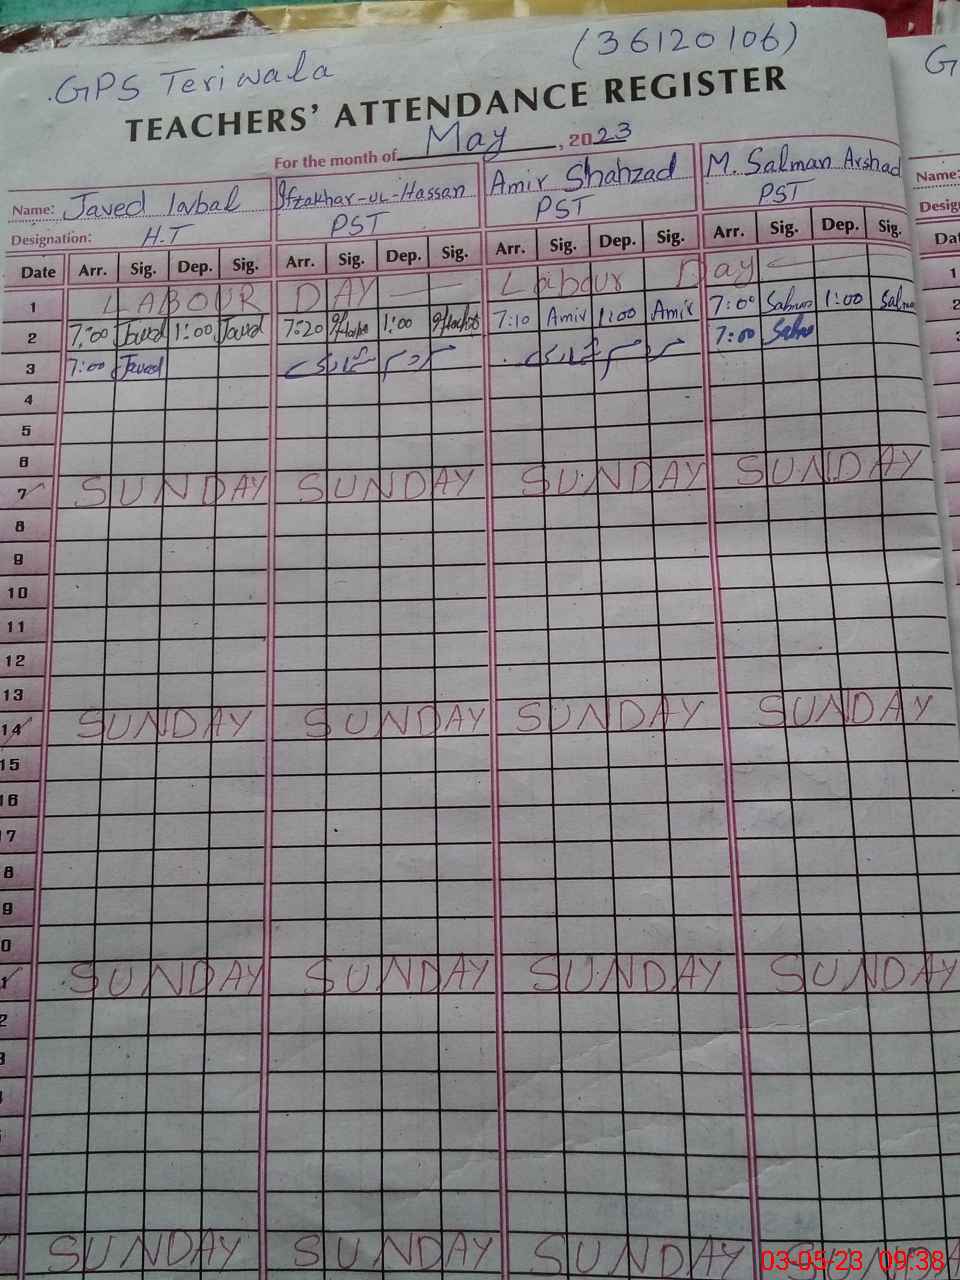 GPS Teriwala (36120106)
TEACHERS' ATTENDANCE REGISTER
For the month of May, 2023
Name: Javed Iqbal Iftakhar-ul-Hassan Amir Shahzad M. Salman Arshad Name:
Designation: H.T PST PST PST
Date Arr. Sig. Dep. Sig. Arr. Sig. Dep. Sig. Arr. Sig. Dep. Sig. Arr. Sig. Dep. Sig.
1 LABOUR DAY Labour Day
2 7:00 Javed 1:00 Javed 7:20 1:00 7:10 Amir 1:00 Amir 7:00 Salman 1:00
3 7:00 Javed مردم شماری مردم شماری 7:00
4
5
6
7 SUNDAY SUNDAY SUNDAY SUNDAY
8
9
10
11
12
13
14 SUNDAY SUNDAY SUNDAY SUNDAY
15
16
17
8
9
0
1 SUNDAY SUNDAY SUNDAY SUNDAY
2
3
SUNDAY SUNDAY SUNDAY
03-05-23 09:38